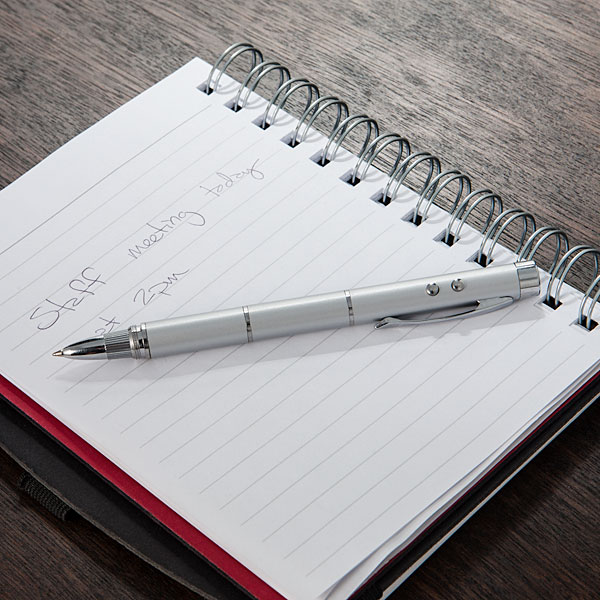 Staff meeting today
at 2pm